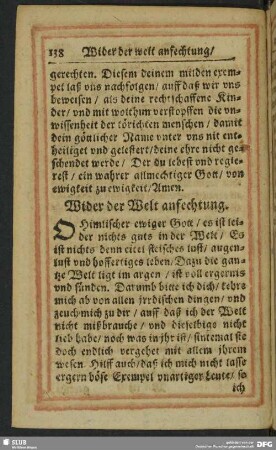 138 Wider der welt anfechtung/
gerechten. Diesem deinem milden exem-
pel laß vns nachfolgen/ auff daß wir vns
beweisen/ als deine rechtschaffene Kin-
der/ vnd mit wolthun verstopffen die vn-
wissenheit der törichten menschen/ damit
dein götlicher Name vnter vns nit ent-
heiliget vnd gelestert/ deine ehre nicht ge-
schendet werde/ Der du lebest vnd regie-
rest/ ein wahrer allmechtiger Gott/ von
ewigkeit zu ewigkeit/ Amen.
Wider der Welt anfechtung.
O Himlischer ewiger Gott/ es ist lei-
der nichts guts in der Welt/ Es
ist nichts denn eitel fleisches lust/ augen-
lust vnd hoffertiges leben. Dazu die gan-
tze Welt ligt im argen/ ist voll ergernis
vnd sünden. Darumb bitte ich dich/ kehre
mich ab von allen jrrdischen dingen/ vnd
zeuch mich zu dir/ auff daß ich der Welt
nicht mißbrauche/ vnd dieselbige nicht
lieb habe/ noch was in jhr ist/ sintemal sie
doch endlich vergehet mit allem jhrem
wesen. Hilff auch/ daß ich mich nicht lasse
ergern böse Exempel vnartiger Leute/ so
ich
SLUB